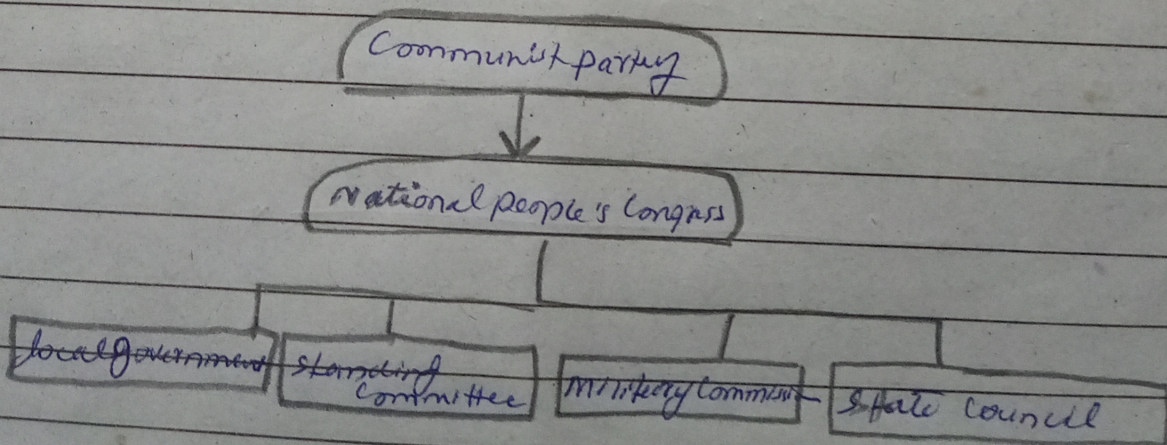 Communist party
National people's Congress
local government
Standing
Committee
Military Commissi
State Council